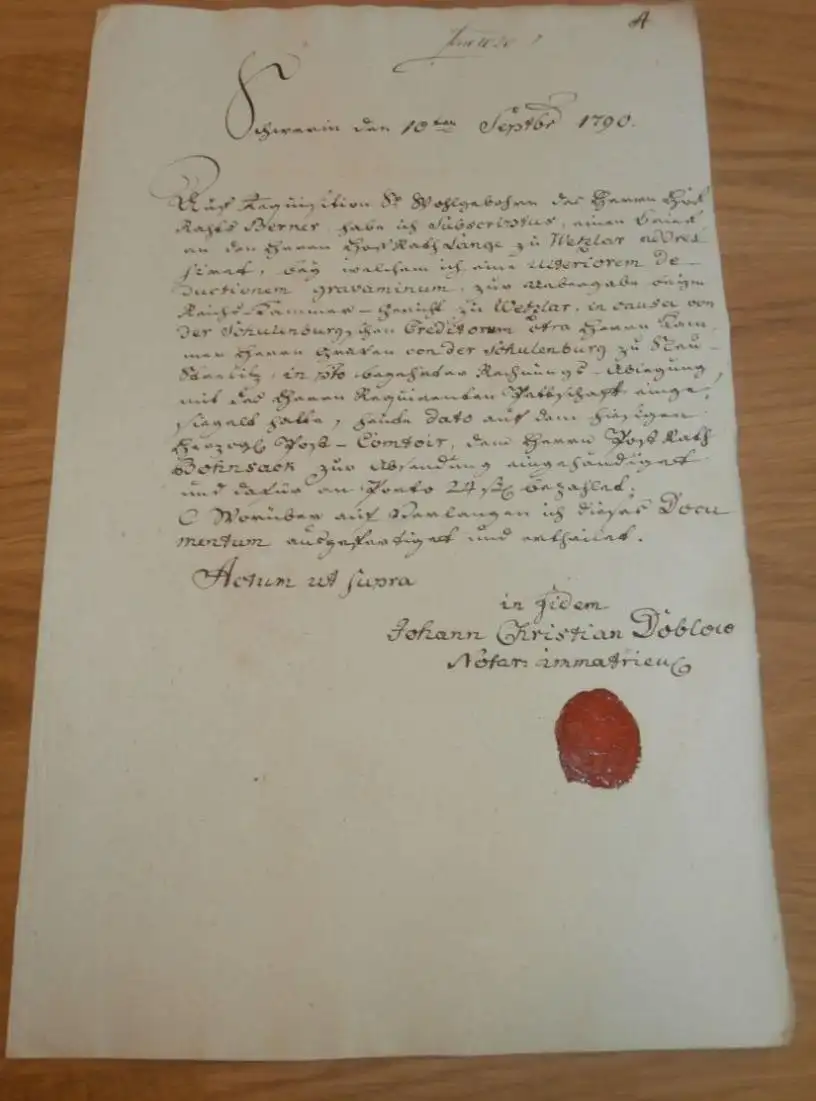 A
Schwerin den 10ten Septbr 1790.
Auf Requisition Sr Wohlgebohren des Herrn Hof
Raths Berner, habe ich Subscriptus, einen Brief
an den Herrn HofRath Lange zu Wetzlar addres
siret, bey welchem ich eine ulteriorem De-
ductionem gravaminum, zur Uebergabe beym
Reichs-Kammer-Gericht zu Wetzlar, in causa von
der Schulenburgschen Creditorum ctra Herrn Kam-
mer Herrn Grafen von der Schulenburg zu Neu-
Strelitz, in pto begehrter Rechnungs-Ablegung,
mit des Herrn Requirenten Pettschaft einge-
siegelt hatte, heute dato auf dem hiesigen
Herzogl Post-Comtoir, dem Herrn PostRath
Bohnsack zur Absendung eingehändiget
und dafür an Porto 24 ßl bezahlet.
Worüber auf Verlangen ich dieses Docu
mentum ausgefertiget und ertheilet.
Actum ut supra
in fidem
Johann Christian Döblow
Notar: immatricul